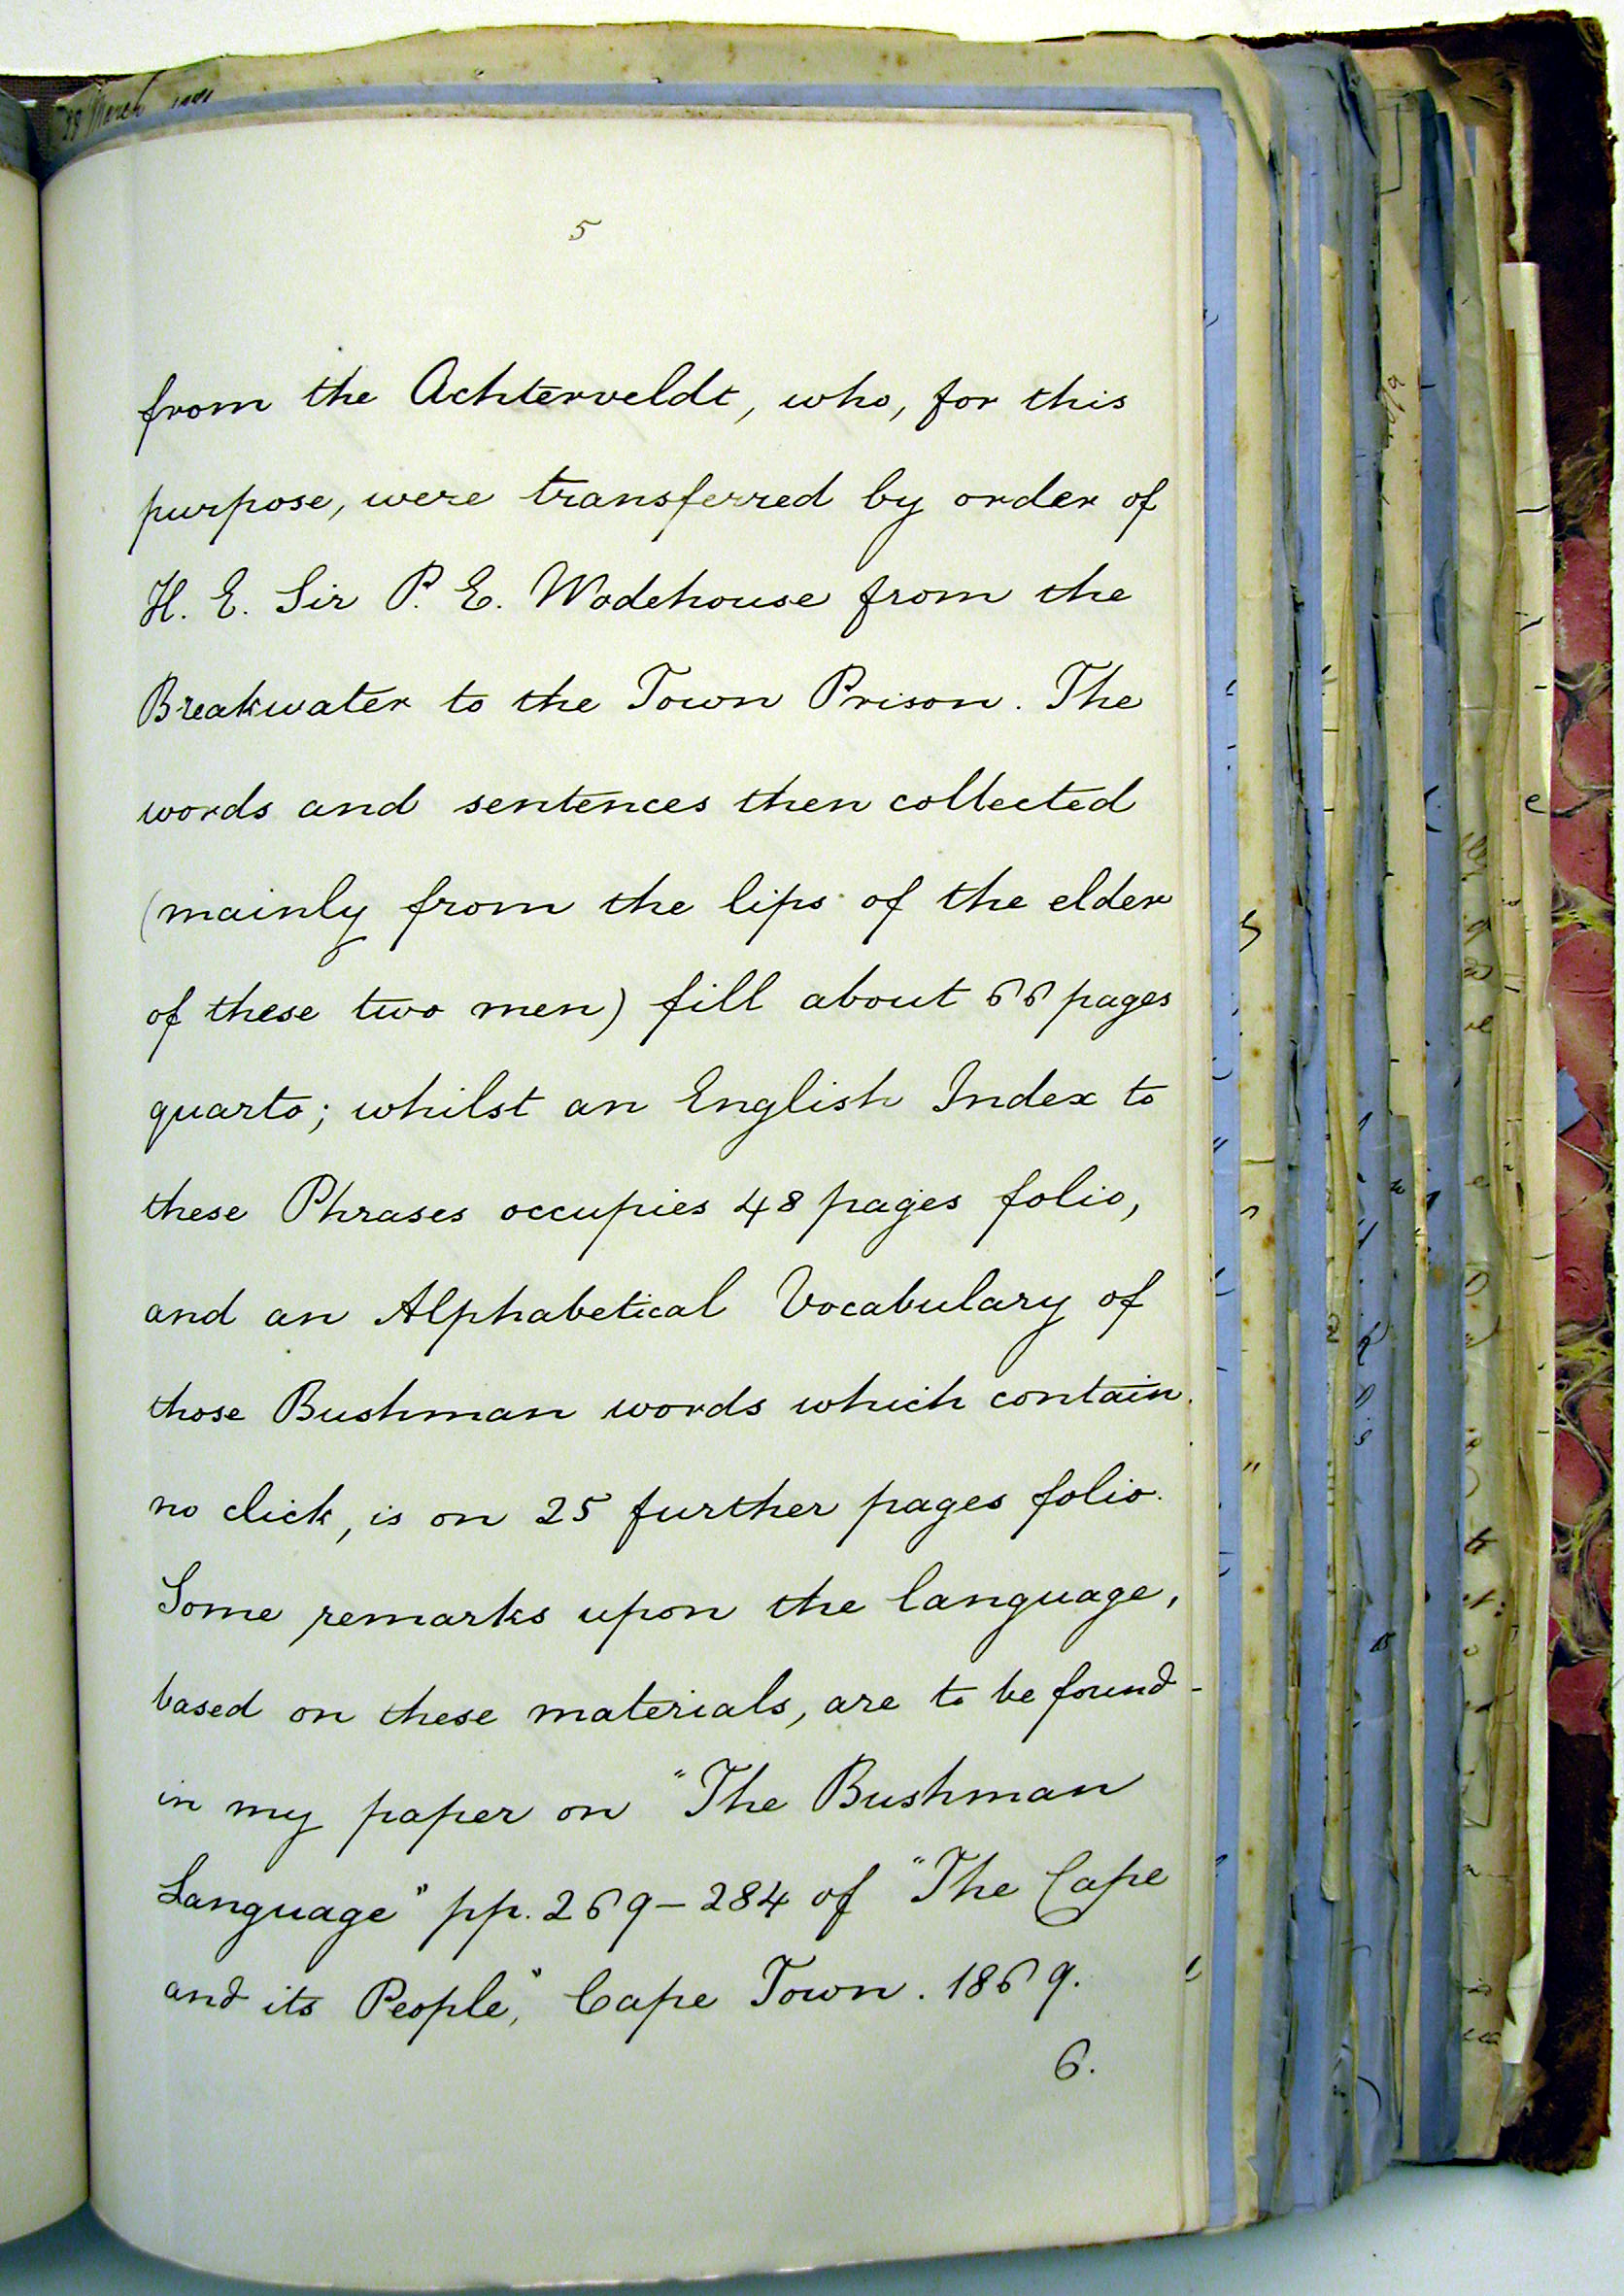 March
5
from the Achterveldt, who, for this
purpose, were transferred by order of
H. E. Sir P. E. Wodehouse from the
Breakwater to the Town Prison. The
words and sentences then collected
(mainly from the lips of the elder
of these two men) fill about 66 pages
quarto; whilst an English Index to
these Phrases occupies 48 pages folio,
and an Alphabetical Vocabulary of
those Bushman words which contain
no click, is on 25 further pages folio.
Some remarks upon the language,
based on these materials, are to be found
in my paper on "The Bushman
Language" pp. 269–284 of "The Cape
and its People," Cape Town. 1869.
6.